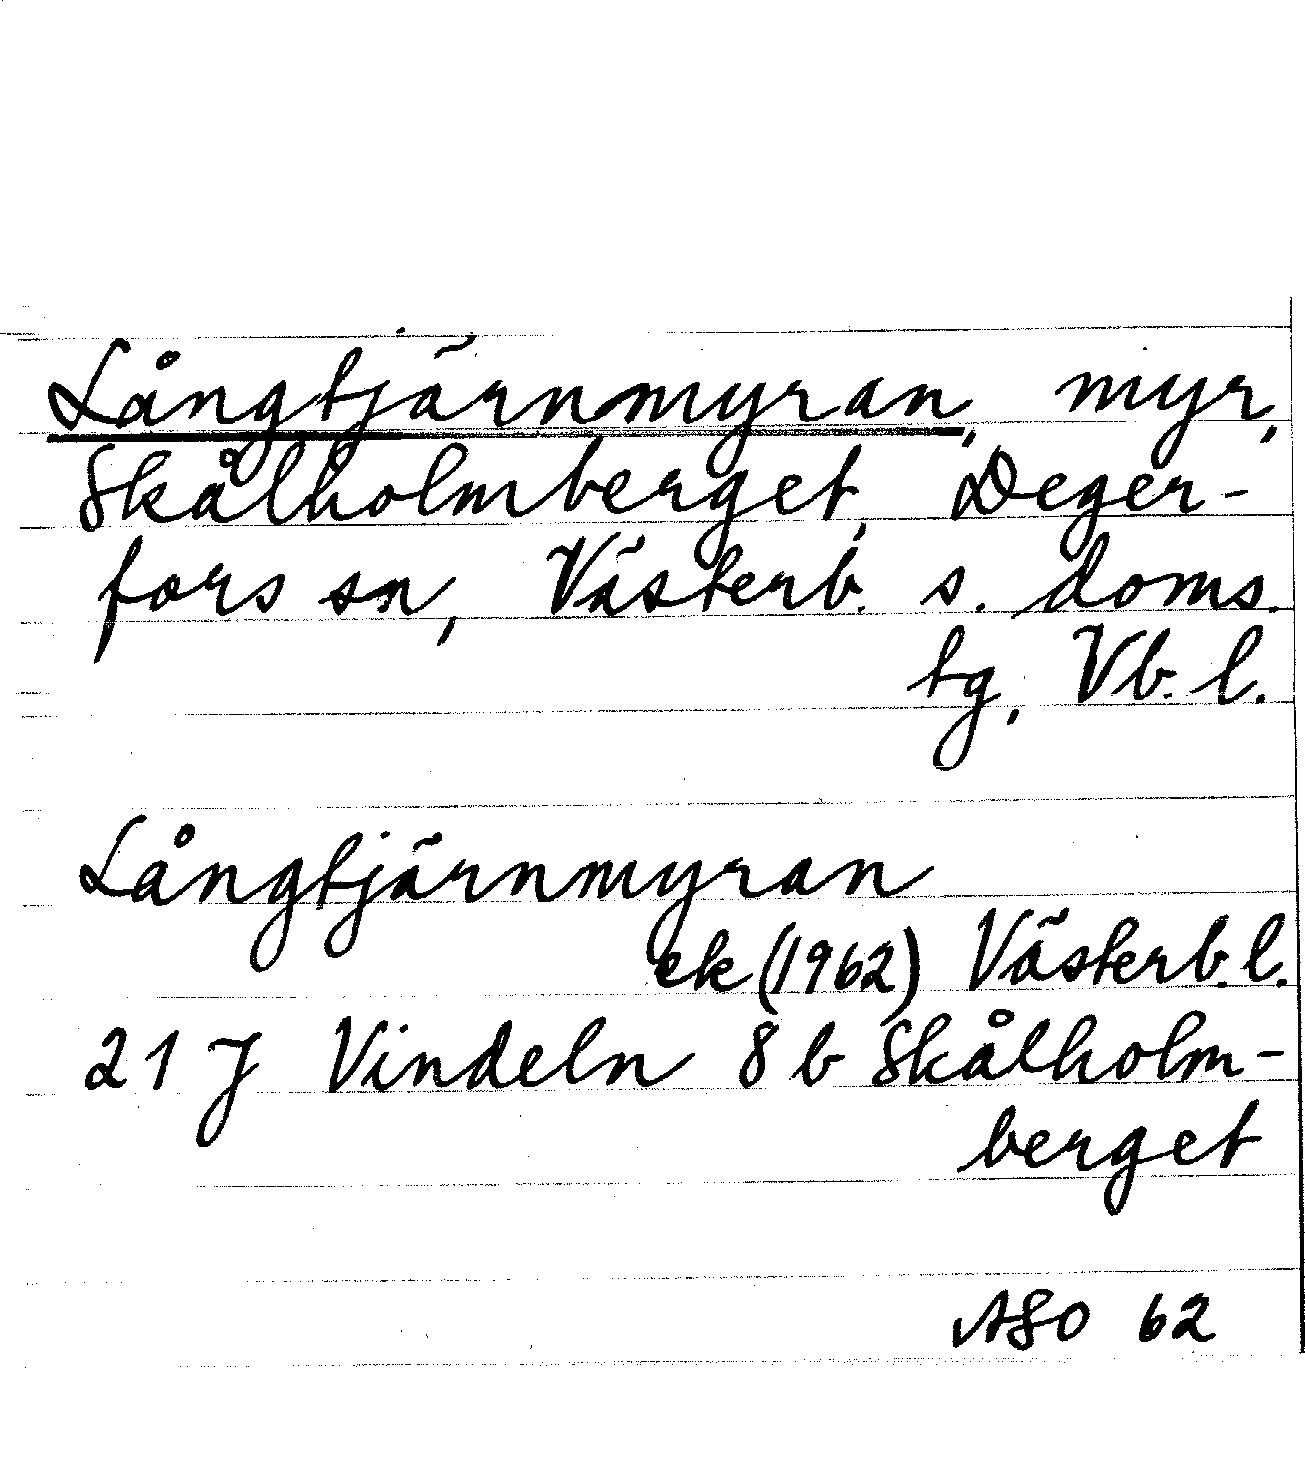 Långtjärnmyran, myr,
Skålholmberget, Deger-
fors sn, Västerb. s. doms.
tg, Vb. l.
Långtjärnmyran
ek (1962) Västerb. l.
21 J Vindeln 8 b Skålholm-
berget
ASO 62